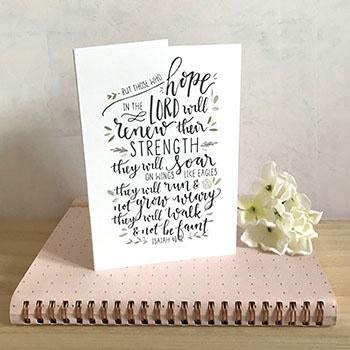 BUT THOSE WHO hope
IN THE LORD will
renew their
STRENGTH
they will soar
ON WINGS LIKE EAGLES
they will run &
not grow weary
they will walk
& not be faint
ISAIAH